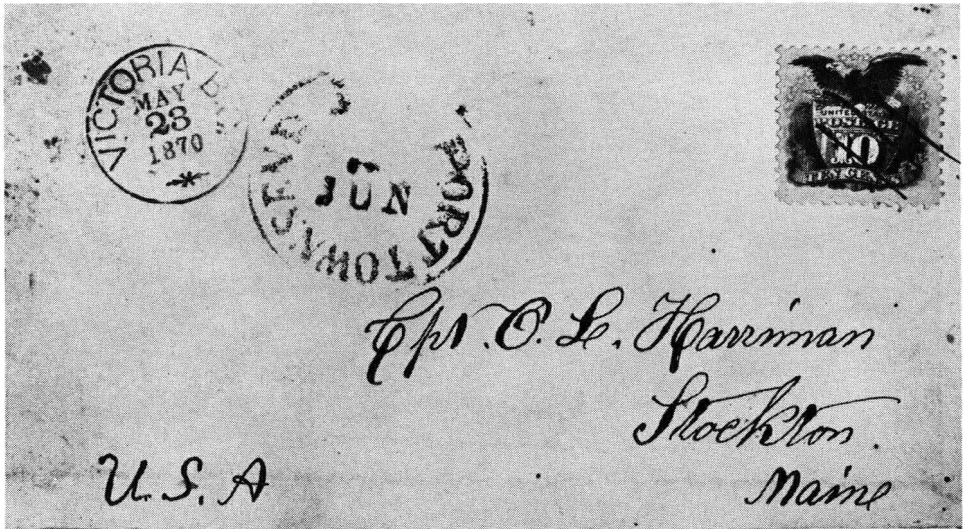 VICTORIA
MAY
23
1870
PORT TOWNSEND
JUN
UNITED STATES
POSTAGE
10
TEN CENTS
Cpt. C. L. Harriman
Stockton.
Maine
U. S. A